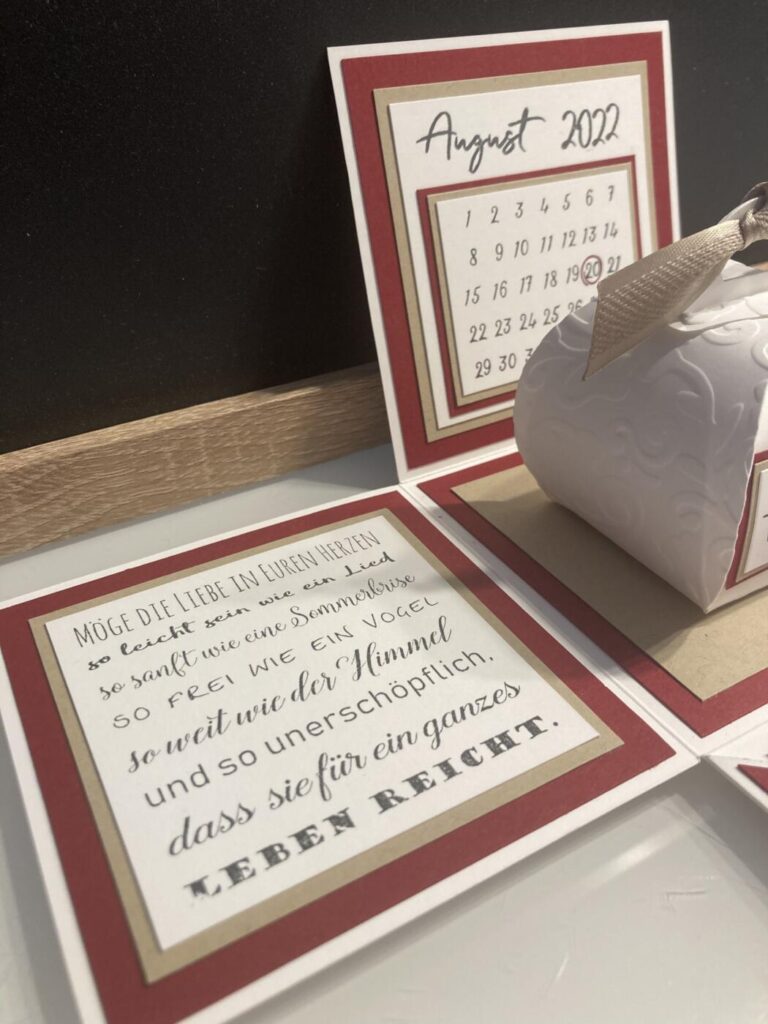 August 2022
1 2 3 4 5 6 7
8 9 10 11 12 13 14
15 16 17 18 19 20 21
22 23 24 25 26
29 30
MÖGE DIE LIEBE IN EUREN HERZEN
so leicht sein wie ein Lied
so sanft wie eine Sommerbrise
SO FREI WIE EIN VOGEL
so weit wie der Himmel
und so unerschöpflich,
dass sie für ein ganzes
LEBEN REICHT.